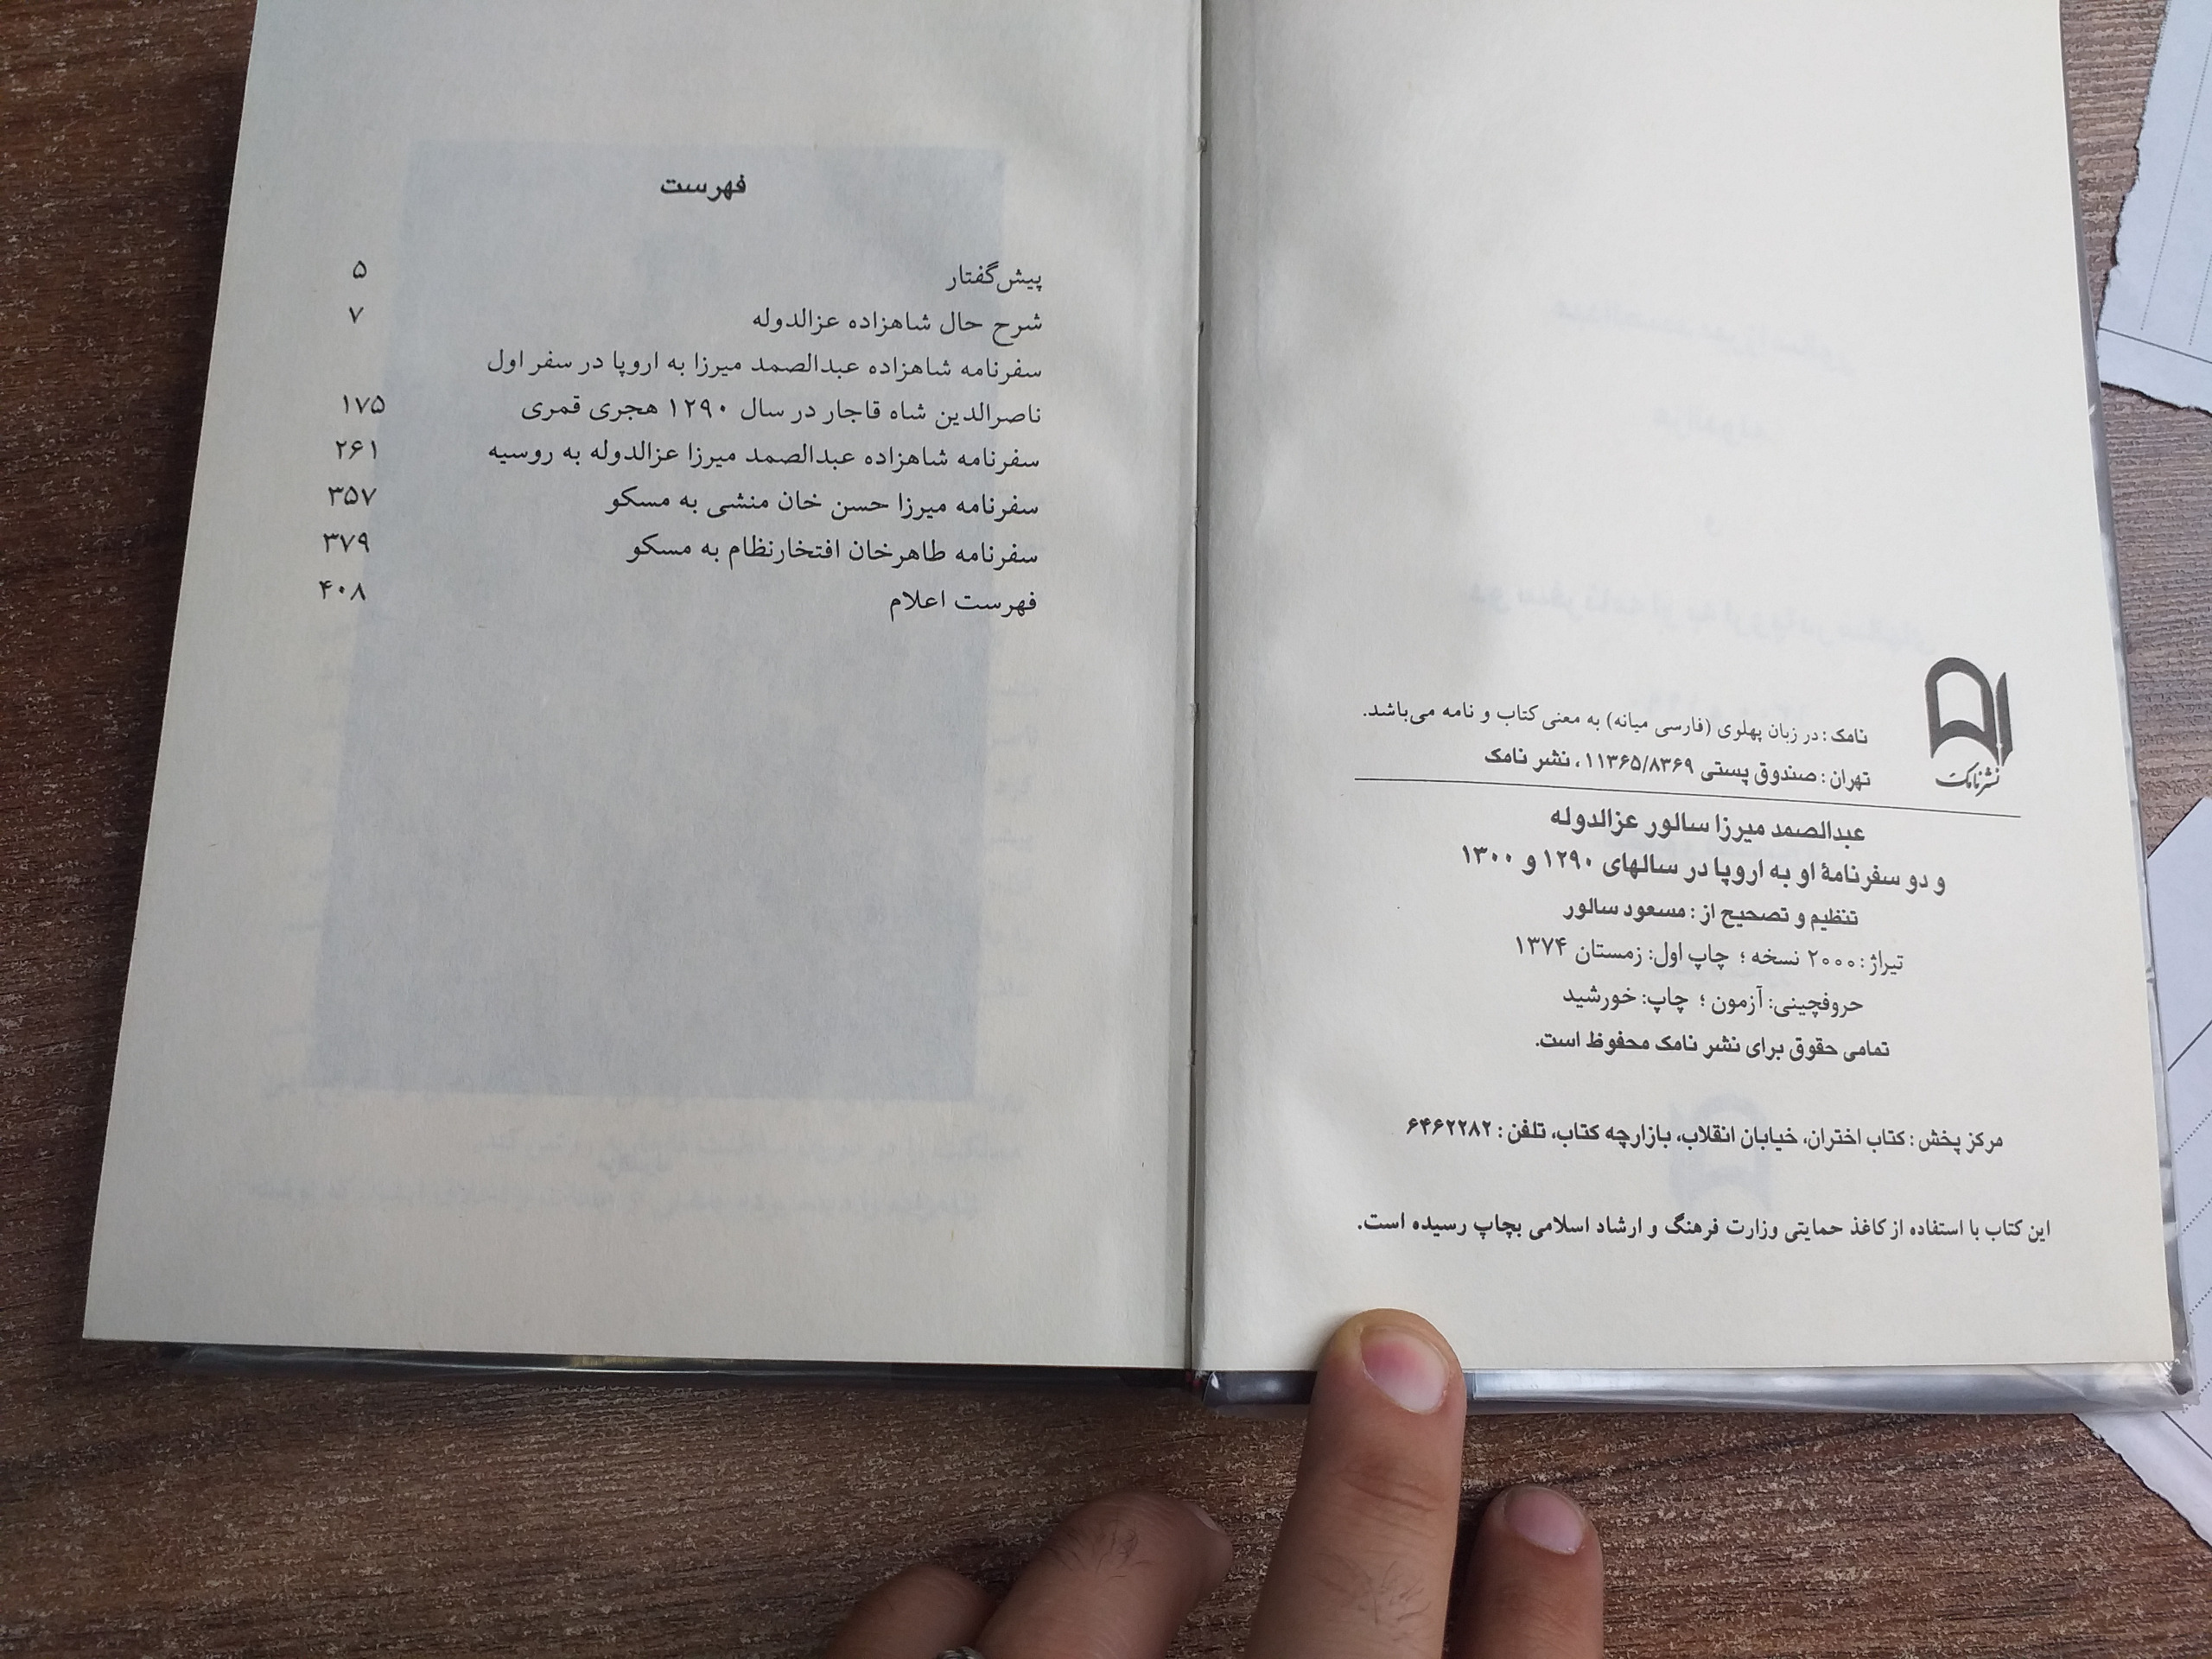 نشر نامک
نامک: در زبان پهلوی (فارسی میانه) به معنی کتاب و نامه می‌باشد.
تهران: صندوق پستی ۱۱۳۶۵/۸۳۶۹، نشر نامک
عبدالصمد میرزا سالور عزالدوله
و دو سفرنامهٔ او به اروپا در سالهای ۱۲۹۰ و ۱۳۰۰
تنظیم و تصحیح از: مسعود سالور
تیراژ: ۲۰۰۰ نسخه؛ چاپ اول: زمستان ۱۳۷۴
حروفچینی: آزمون؛ چاپ: خورشید
تمامی حقوق برای نشر نامک محفوظ است.
مرکز پخش: کتاب اختران، خیابان انقلاب، بازارچه کتاب، تلفن: ۶۴۶۲۲۸۲
این کتاب با استفاده از کاغذ حمایتی وزارت فرهنگ و ارشاد اسلامی بچاپ رسیده است.
فهرست
پیش‌گفتار ۵
شرح حال شاهزاده عزالدوله ۷
سفرنامه شاهزاده عبدالصمد میرزا به اروپا در سفر اول
ناصرالدین شاه قاجار در سال ۱۲۹۰ هجری قمری ۱۷۵
سفرنامه شاهزاده عبدالصمد میرزا عزالدوله به روسیه ۲۶۱
سفرنامه میرزا حسن خان منشی به مسکو ۳۵۷
سفرنامه طاهرخان افتخارنظام به مسکو ۳۷۹
فهرست اعلام ۴۰۸